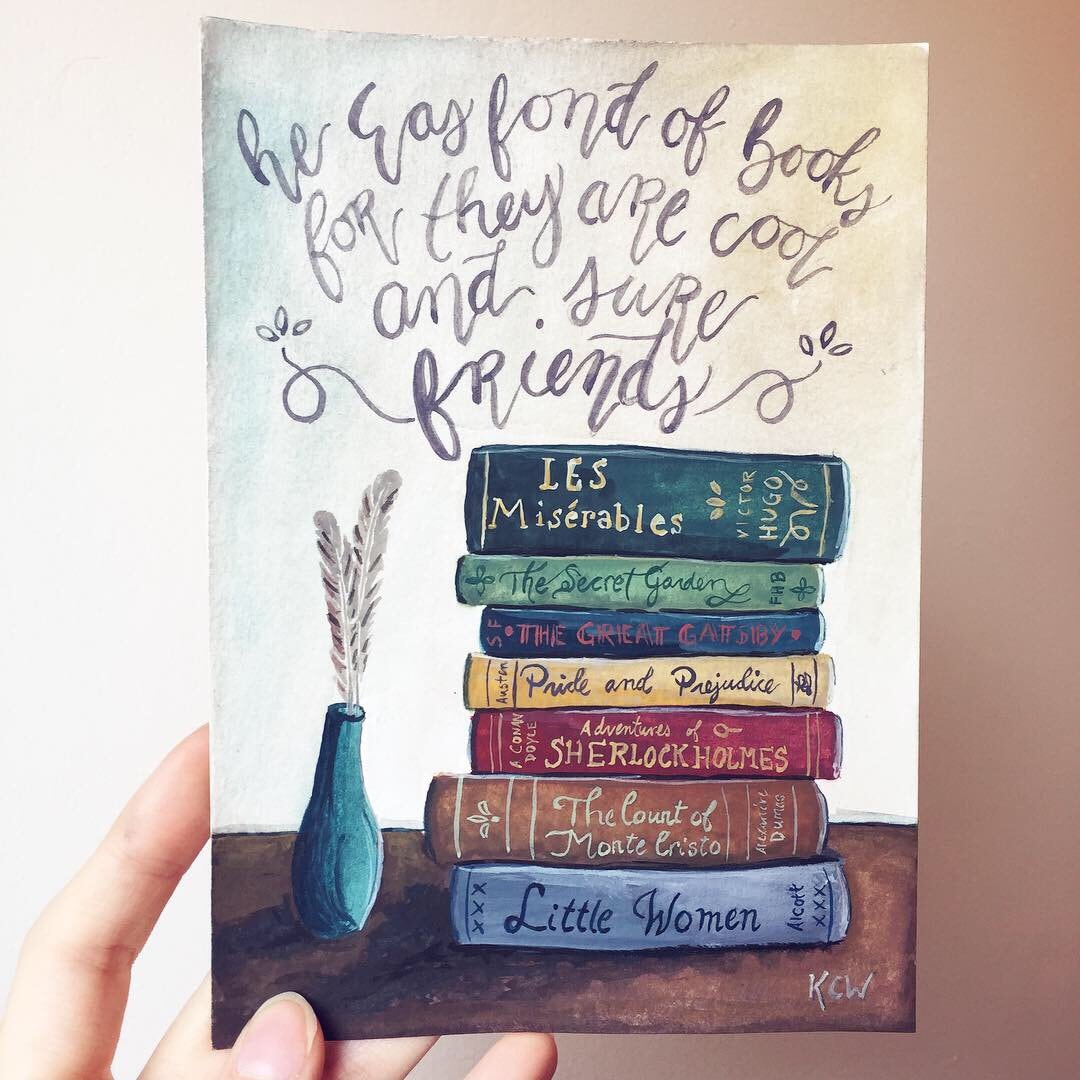 he was fond of books
for they are cool
and sure
friends
LES
Misérables
VICTOR
HUGO
The Secret Garden
FHB
SF
THE GREAT GATSBY
Austen
Pride and Prejudice
A CONAN
DOYLE
Adventures of
SHERLOCK HOLMES
The Count of
Monte Cristo
Alexandre
Dumas
xxx
Little Women
Alcott
xxx
KCW